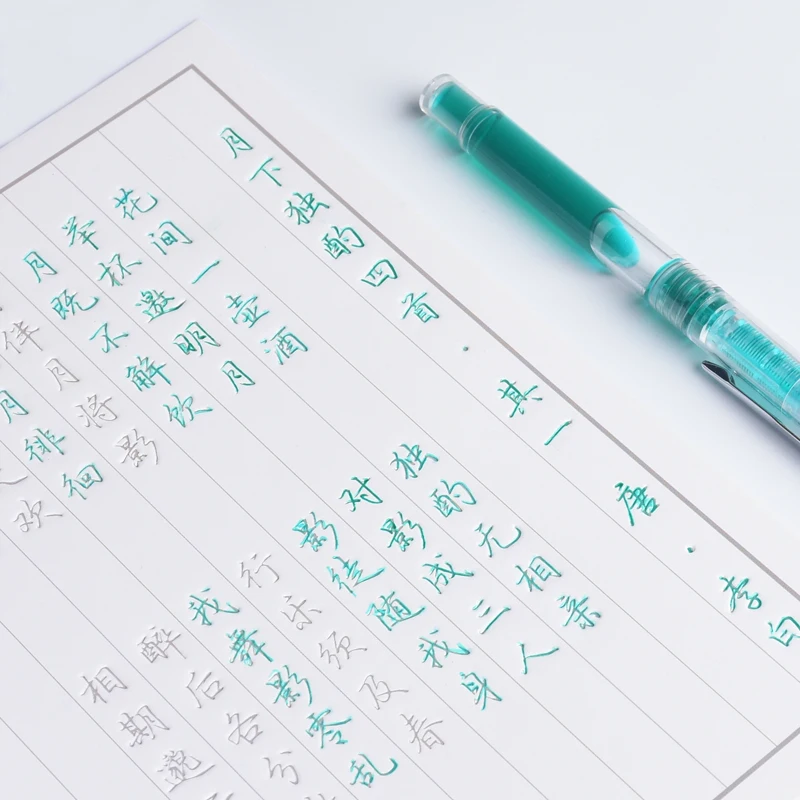 月下独酌四首·其一 唐·李白
花间一壶酒 独酌无相亲
举杯邀明月 对影成三人
月既不解饮 影徒随我身
伴月将影 行乐须及春
月徘徊 我舞影零乱
欢 醉后各分
相期邈